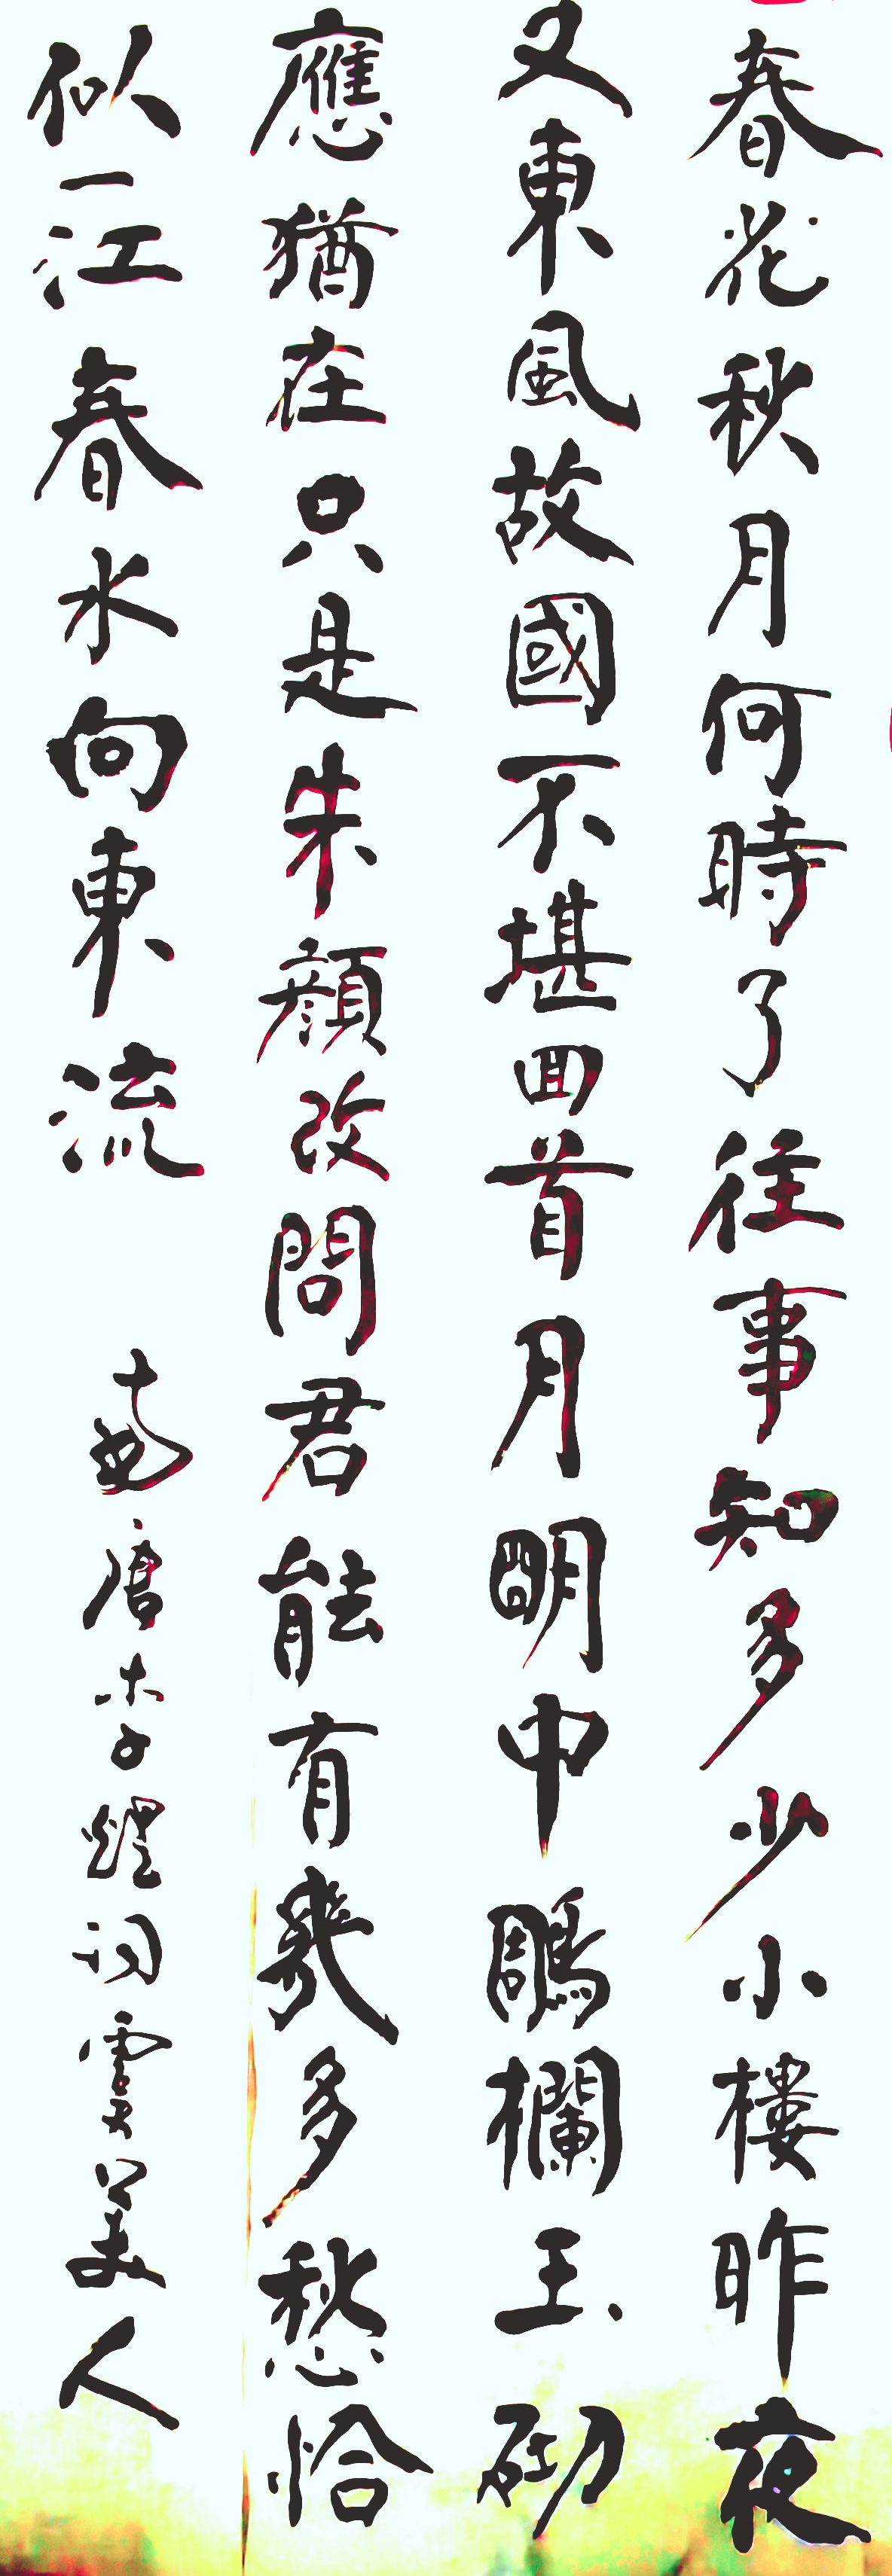 春花秋月何時了往事知多少小樓昨夜
又東風故國不堪回首月明中鵰欄玉砌
應猶在只是朱顔改問君能有幾多愁恰
似一江春水向東流 南唐李煜詞虞美人